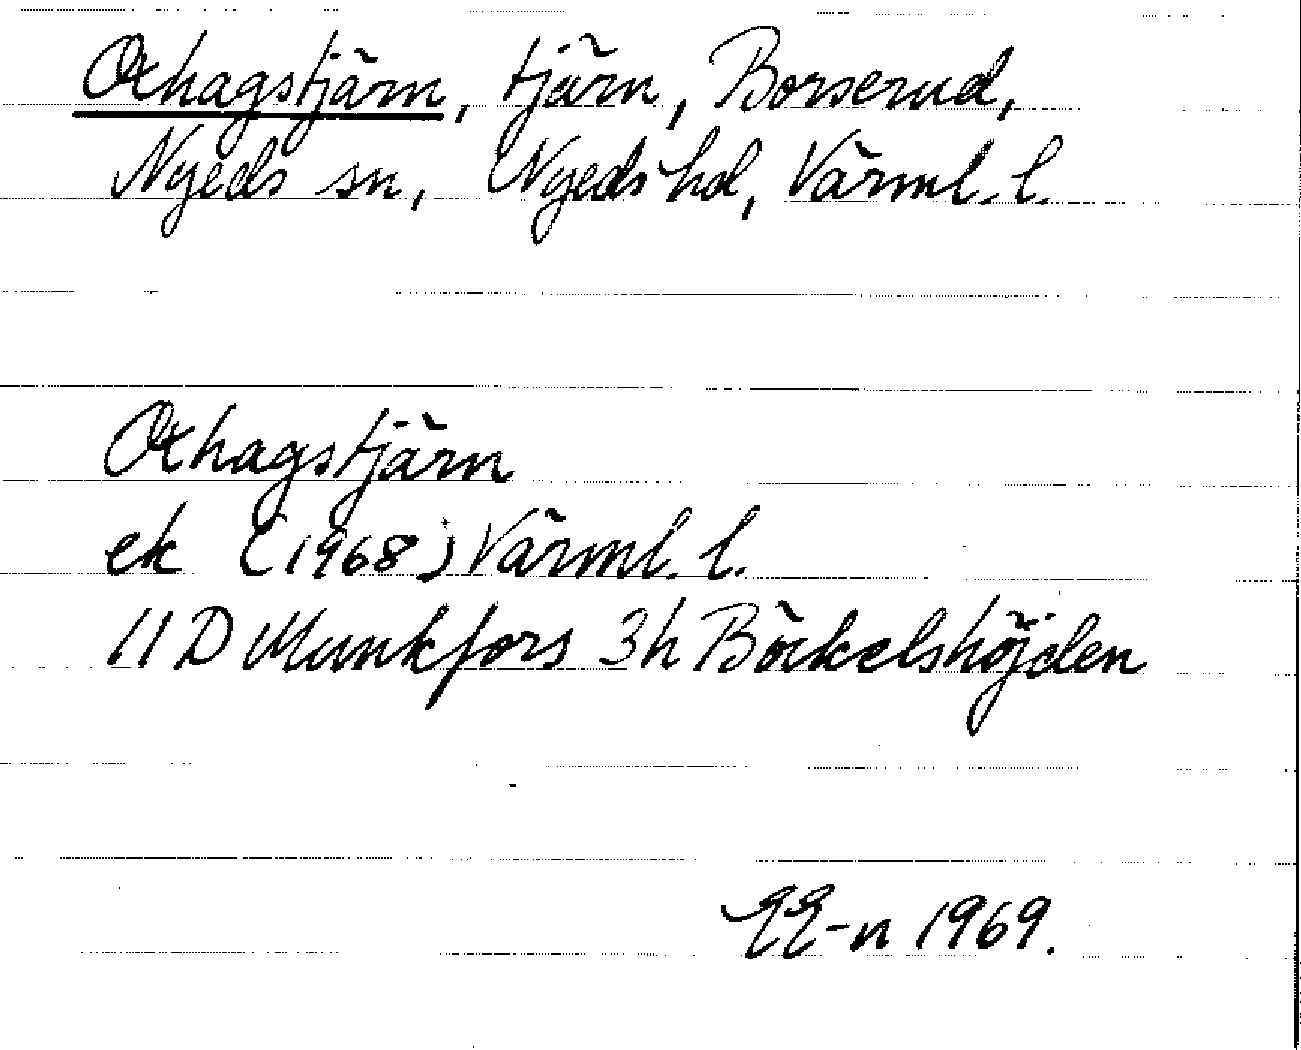 Oxhagstjärn, tjärn, Borserud,
Nyeds sn, Nyeds hd, Värml. l.
Oxhagstjärn
ek (1968) Värml. l.
11 D Munkfors 3h Böckelshöjden
EE-n 1969.